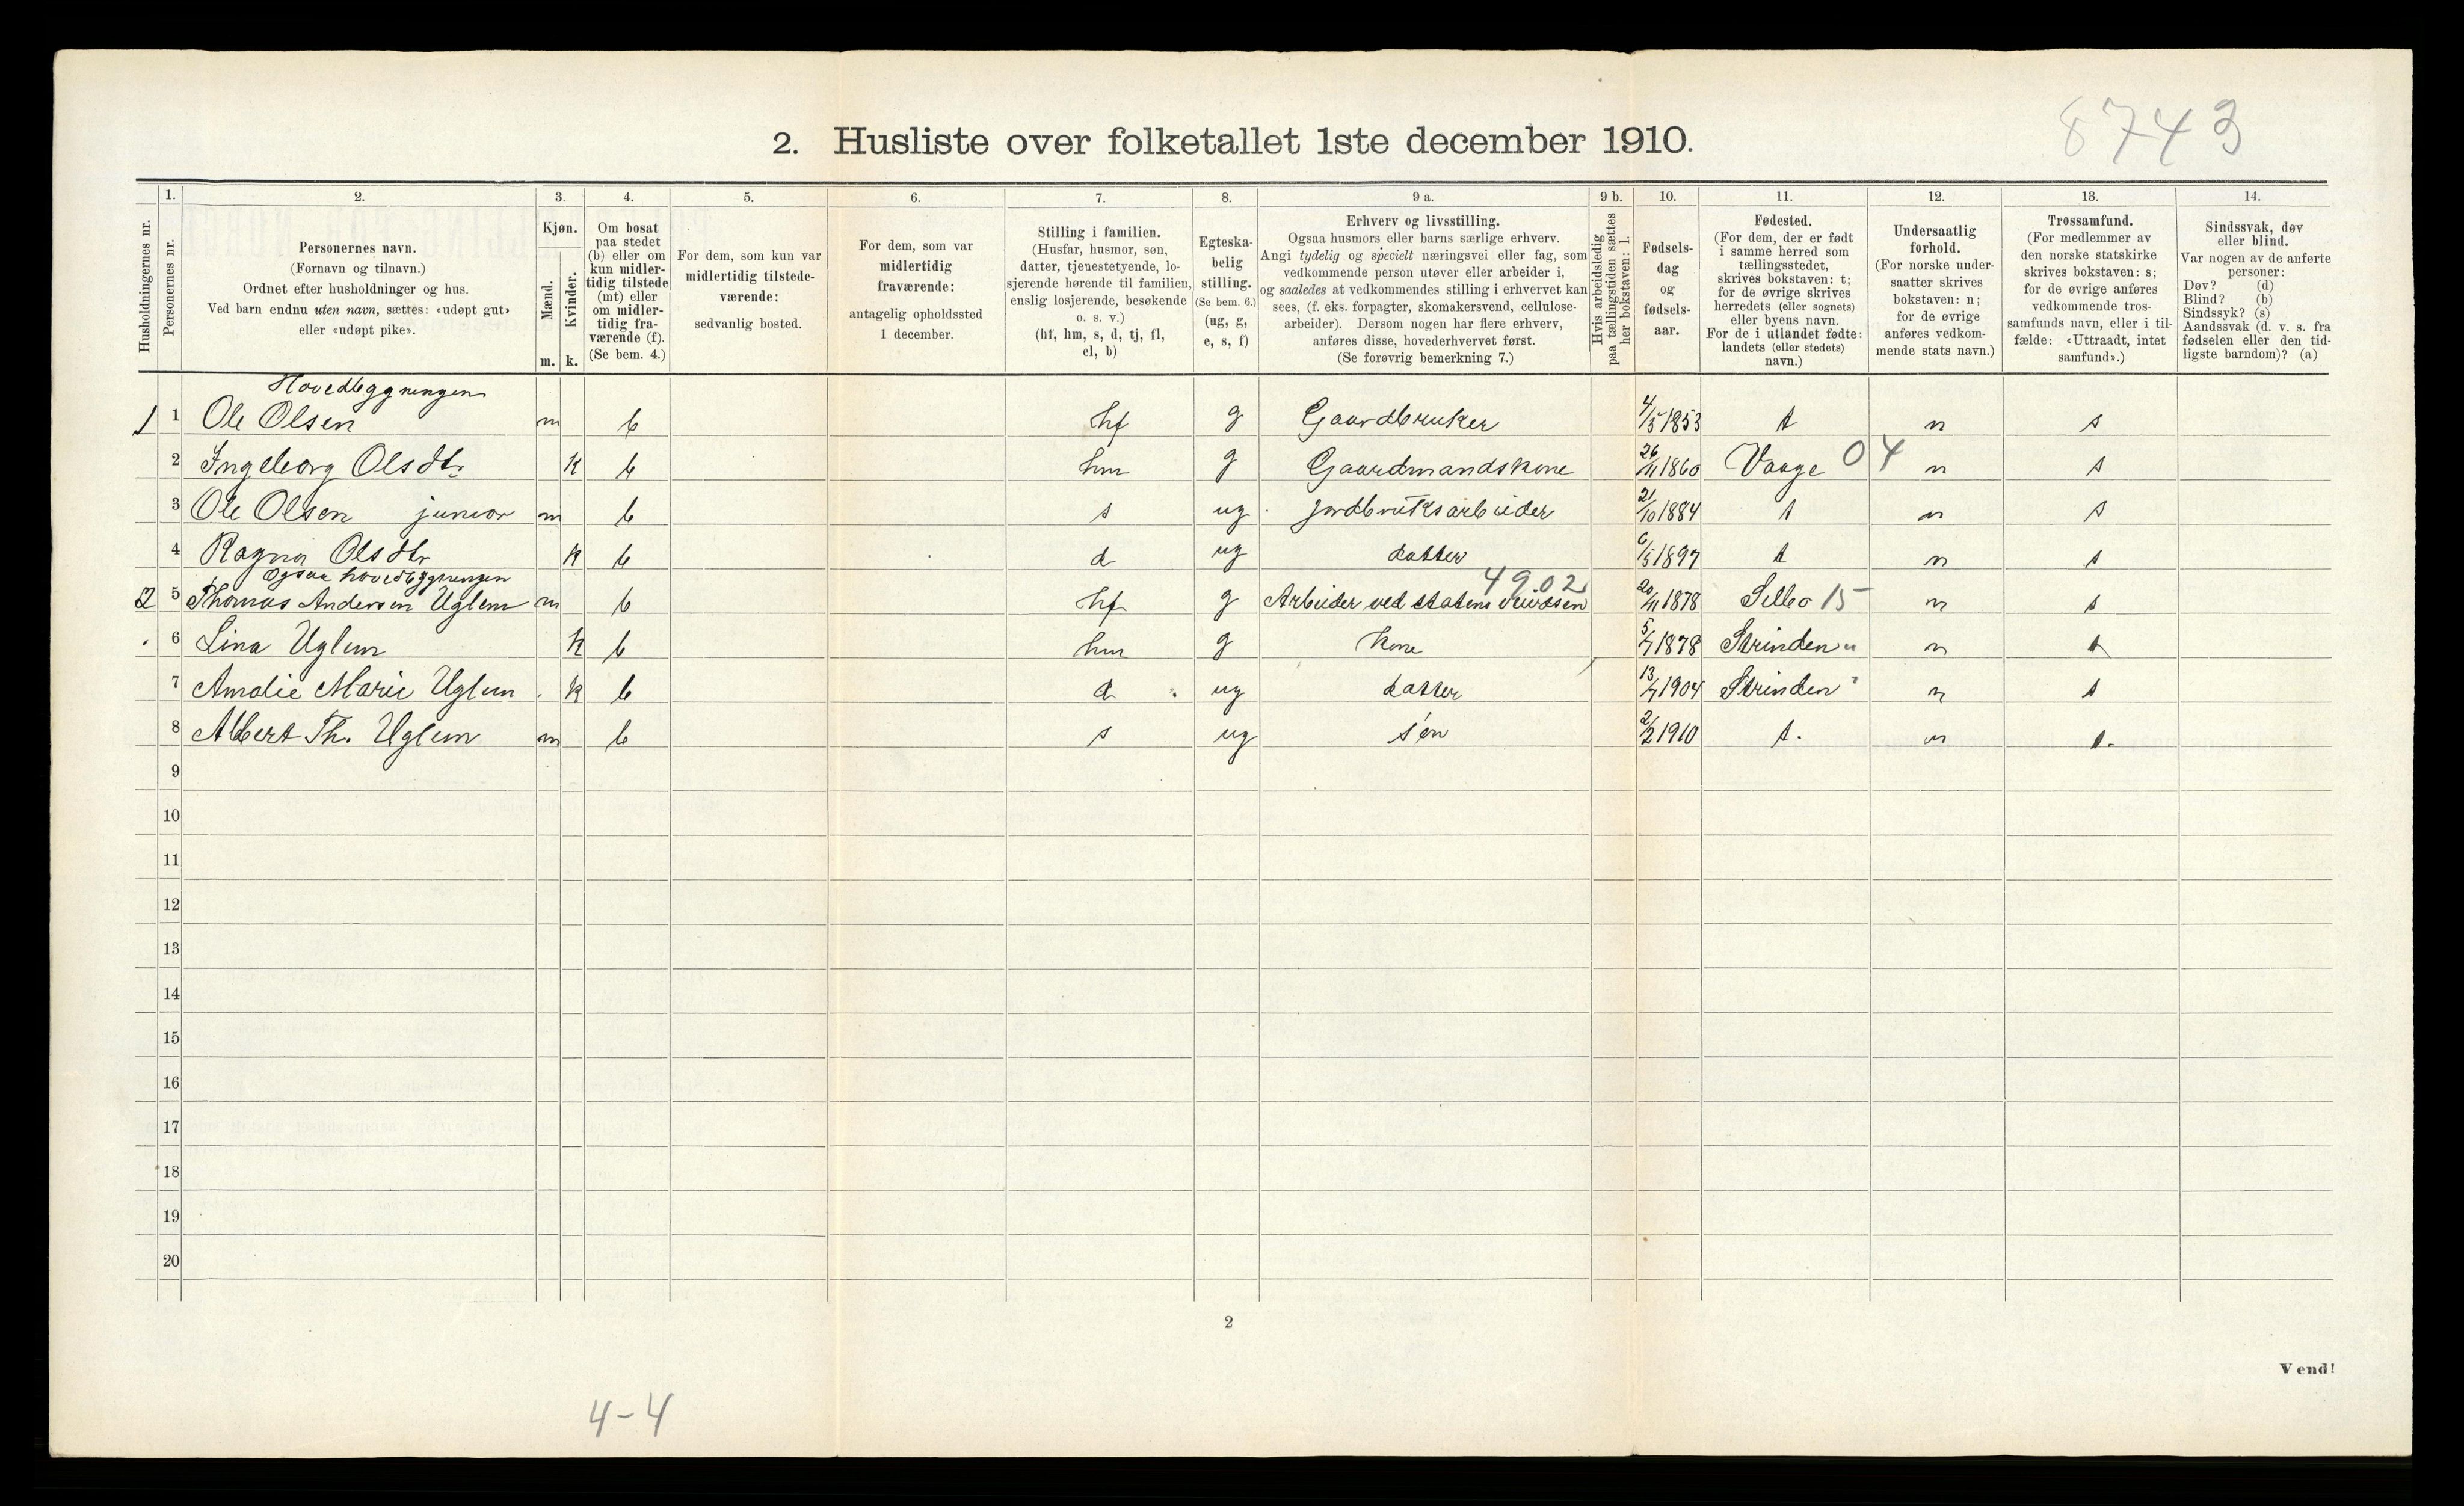 8743
2. Husliste over folketallet 1ste december 1910.
1. 2. 3. 4. 5. 6. 7. 8. 9 a. 9 b. 10. 11. 12. 13. 14.
Husholdningernes nr.
Personernes nr.
Personernes navn.
(Fornavn og tilnavn.)
Ordnet efter husholdninger og hus.
Ved barn endnu uten navn, sættes: «udøpt gut»
eller «udøpt pike».
Kjøn.
Mænd.
Kvinder.
m. k.
Om bosat
paa stedet
(b) eller om
kun midler-
tidig tilstede
(mt) eller
om midler-
tidig fra-
værende (f).
(Se bem. 4.)
For dem, som kun var
midlertidig tilstede-
værende:
sedvanlig bosted.
For dem, som var
midlertidig
fraværende:
antagelig opholdssted
1 december.
Stilling i familien.
(Husfar, husmor, søn,
datter, tjenestetyende, lo-
sjerende hørende til familien,
enslig losjerende, besøkende
o. s. v.)
(hf, hm, s, d, tj, fl,
el, b)
Egteska-
belig
stilling.
(Se bem. 6.)
(ug, g,
e, s, f)
Erhverv og livsstilling.
Ogsaa husmors eller barns særlige erhverv.
Angi tydelig og specielt næringsvei eller fag, som
vedkommende person utøver eller arbeider i,
og saaledes at vedkommendes stilling i erhvervet kan
sees, (f. eks. forpagter, skomakersvend, cellulose-
arbeider). Dersom nogen har flere erhverv,
anføres disse, hovederhvervet først.
(Se forøvrig bemerkning 7.)
Hvis arbeidsledig
paa tællingstiden sættes
her bokstaven: l.
Fødsels-
dag
og
fødsels-
aar.
Fødested.
(For dem, der er født
i samme herred som
tællingsstedet,
skrives bokstaven: t;
for de øvrige skrives
herredets (eller sognets)
eller byens navn.
For de i utlandet fødte:
landets (eller stedets)
navn.)
Undersaatlig
forhold.
(For norske under-
saatter skrives
bokstaven: n;
for de øvrige
anføres vedkom-
mende stats navn.)
Trossamfund.
(For medlemmer av
den norske statskirke
skrives bokstaven: s;
for de øvrige anføres
vedkommende tros-
samfunds navn, eller i til-
fælde: «Uttraadt, intet
samfund».)
Sindssvak, døv
eller blind.
Var nogen av de anførte
personer:
Døv? (d)
Blind? (b)
Sindssyk? (s)
Aandssvak (d. v. s. fra
fødselen eller den tid-
ligste barndom)? (a)
Hovedbygningen
1 1 Ole Olsen m b hf g Gaardbruker 4/5 1853 t n s
2 Ingeborg Olsdtr k b hm g Gaardmandskone 26/11 1860 Vaage 04 n s
3 Ole Olsen junior m b s ug jordbruksarbeider 21/10 1884 t n s
4 Ragna Olsdtr k b d ug datter 6/5 1897 t n s
Ogsaa hovedbygningen 4902
2 5 Thomas Andersen Uglem m b hf g Arbeider ved statens 20/11 1878 Selbo 15 n s
6 Lina Uglem k b hm g kone 5/7 1878 Strinden " n s
7 Amalie Marie Uglem k b d ug datter 13/7 1904 Strinden n s
8 Albert Th. Uglem m b s ug søn 2/2 1910 t. n s.
9
10
11
12
13
14
15
16
17
18
19
20
2
Vend!
4-4